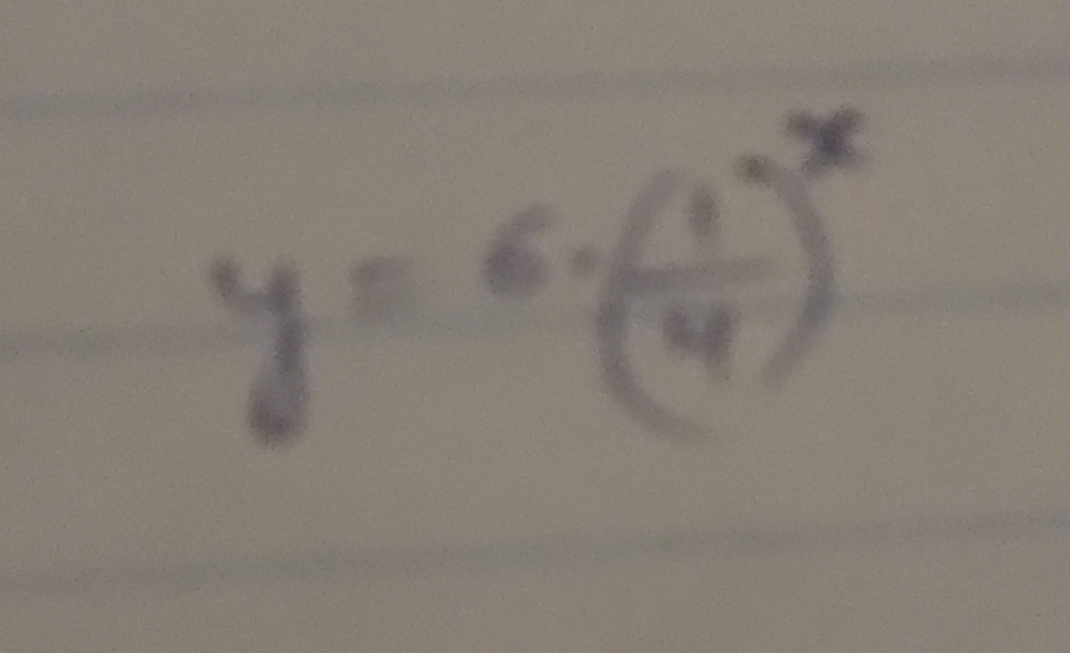 y = 6 · (1/4)^x